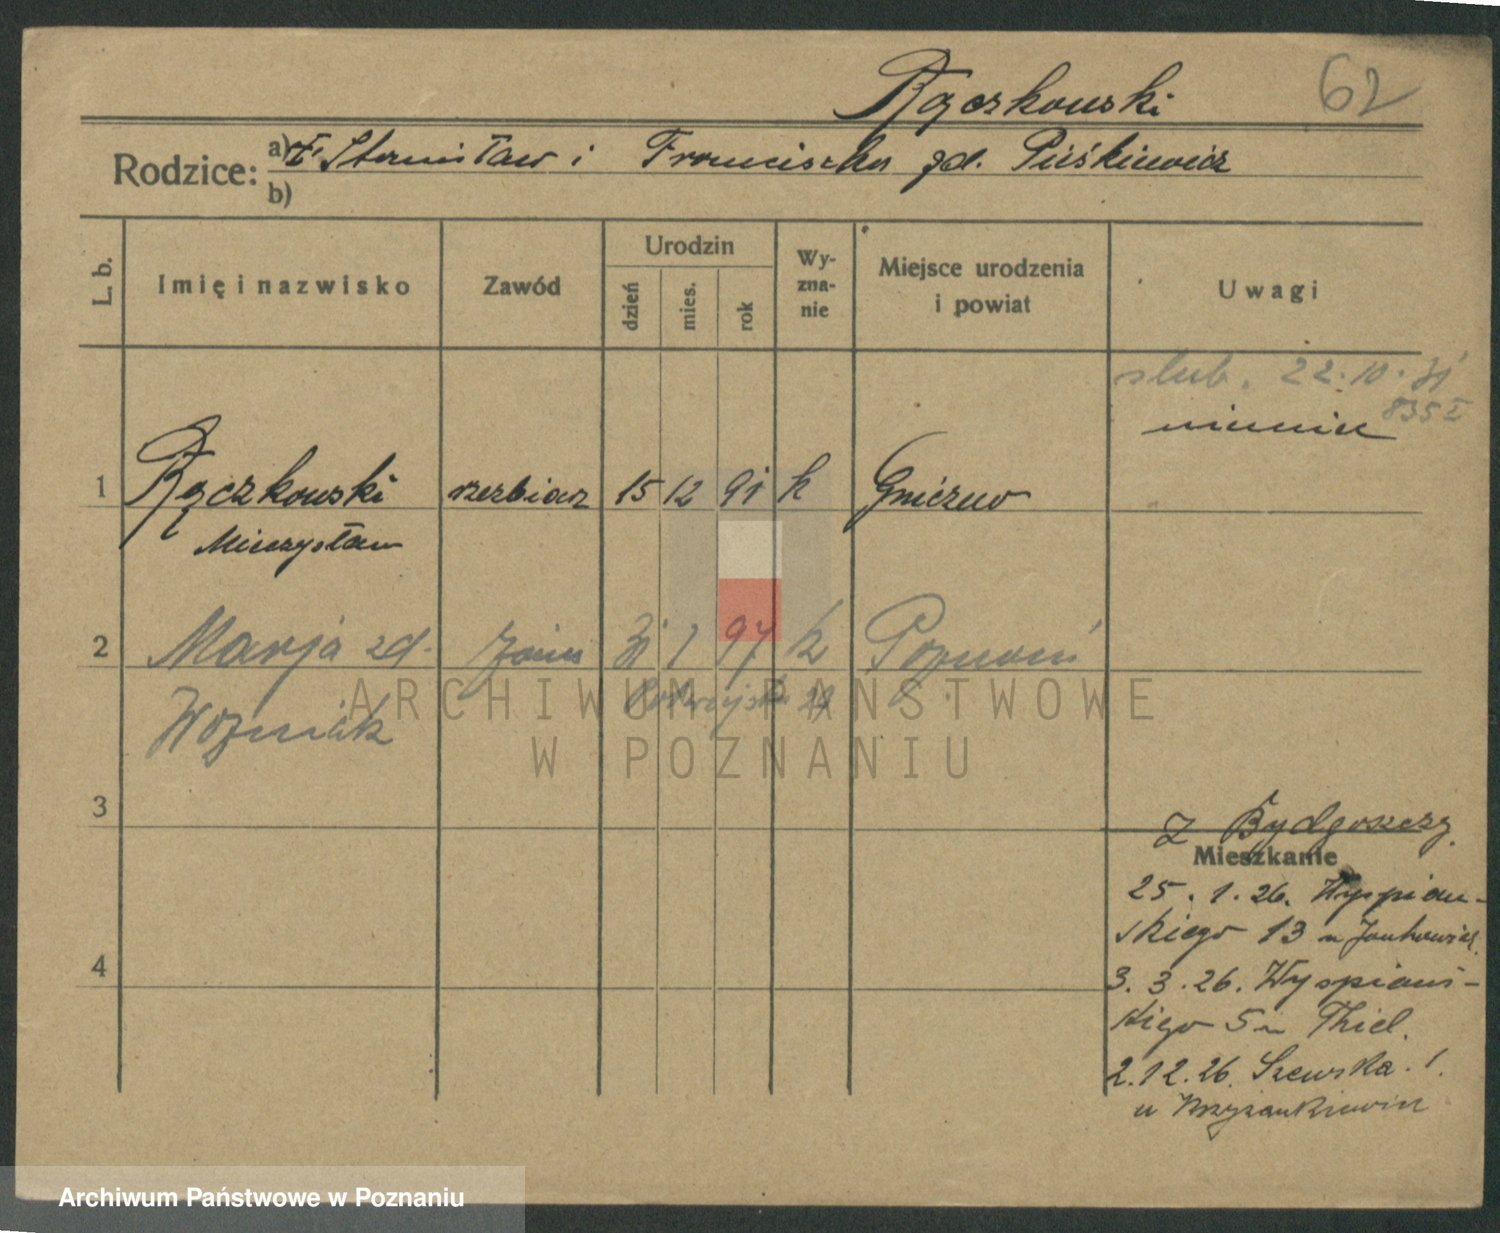 Rączkowski 62
Rodzice: a) † Stanisław i Franciszka zd. Piśkiewicz
b)
L. b. Imię i nazwisko Zawód Urodzin dzień mies. rok Wyznanie Miejsce urodzenia i powiat Uwagi
slub. 22.10.31
835 I
1 Rączkowski rzeźbiarz 15 12 91 k Gniezno
Mieczysław
2 Marja zd. żona 31 7 97 k Poznań
Woźniak
3
4
Z Bydgoszczy
Mieszkanie
25.1.26. Wyspiań-
skiego 13 u Jankowiak
3.3.26. Wyspiań-
skiego 5 u Thiel.
2.12.26. Szewska 1.
u Krzyżankiewicz
ARCHIWUM PAŃSTWOWE
W POZNANIU
Archiwum Państwowe w Poznaniu